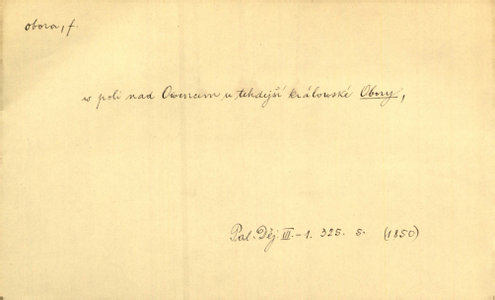 obora, f.
w poli nad Owencem u tehdejší králowské Obory,
Pal. Děj. III.-1. 325. s. (1850)